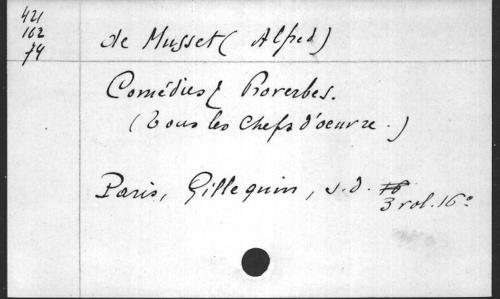 421
102
74
de Musset (Alfred)
Comédies & Proverbes.
(Tous les Chefs d'oeuvre.)
Paris, Gillequin, s.d.
3 vol. 16°